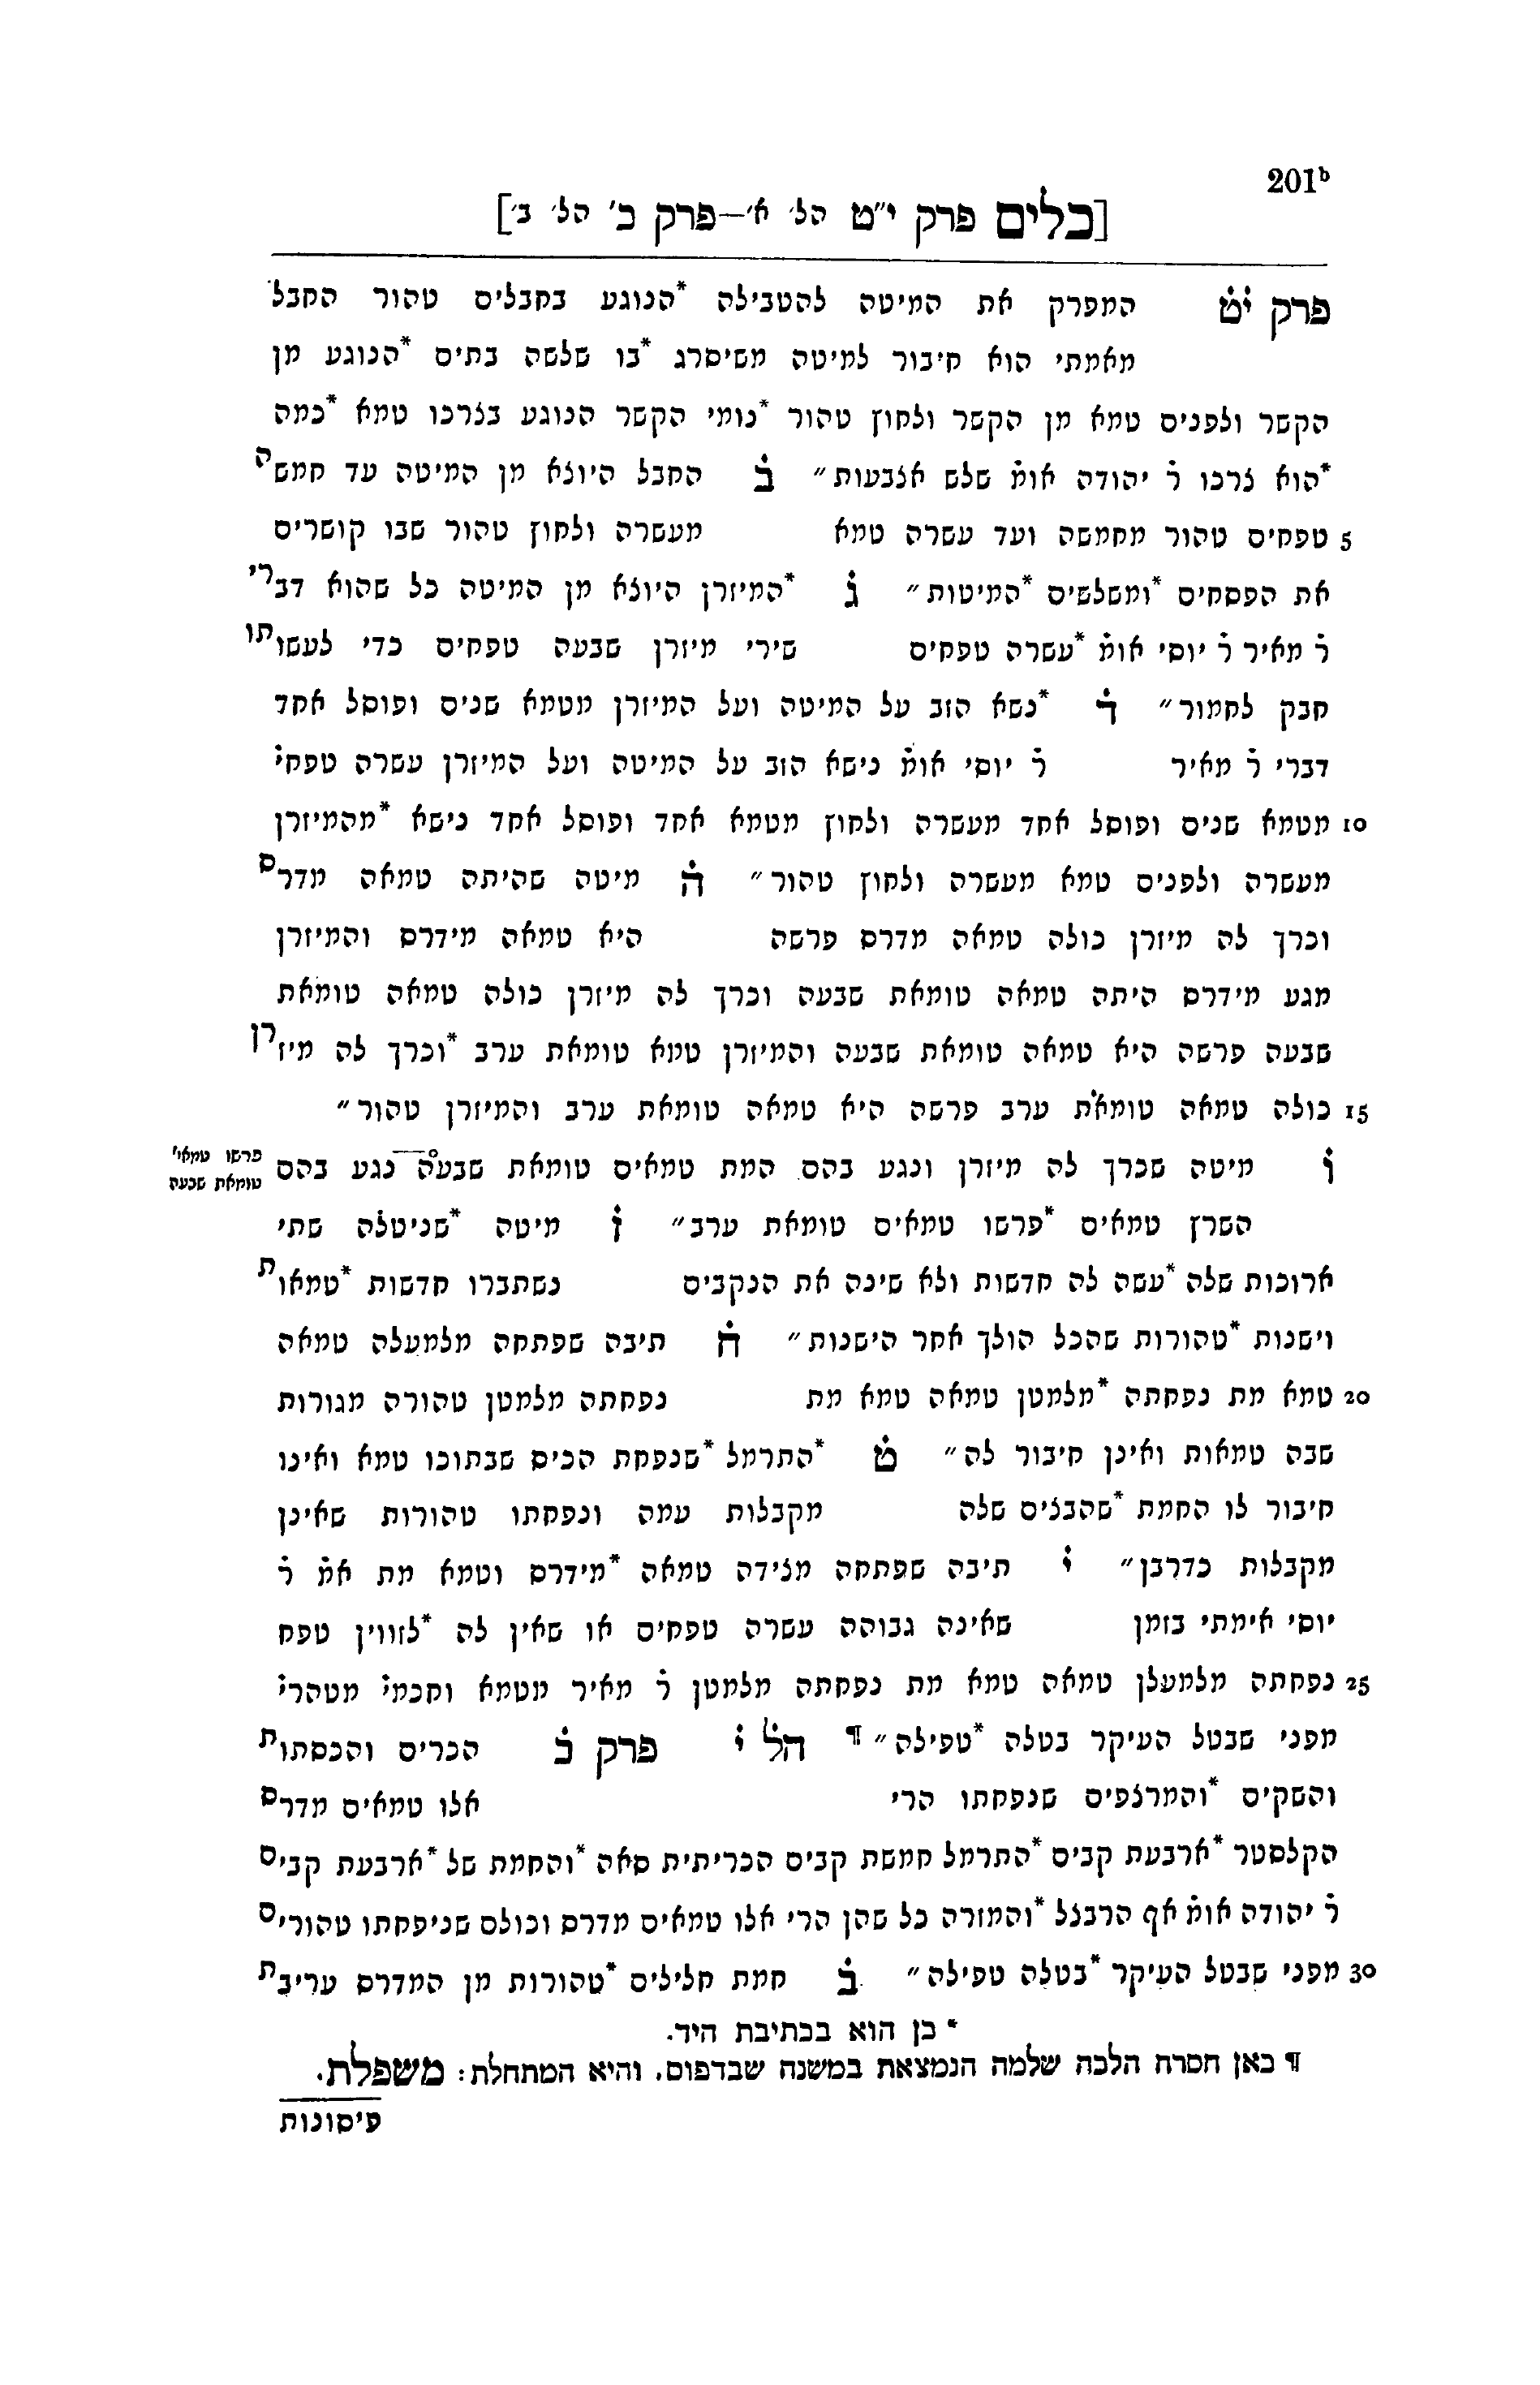 201ᵇ
[כלים פרק י״ט הל׳ א׳—פרק כ׳ הל׳ ב׳]
פרק יט המפרק את המיטה להטבילה *הנוגע בחבלים טהור החבל
מאמתי הוא חיבור למיטה משיסרג *בו שלשה בתים *הנוגע מן
הקשר ולפנים טמא מן הקשר ולחוץ טהור *נומי הקשר הנוגע בצרכו טמא *כמה
*הוא צרכו ר̇ יהודה אומ̇ שלש אצבעות״ ב̇ החבל היוצא מן המיטה עד חמשה
5 טפחים טהור מחמשה ועד עשרה טמא מעשרה ולחוץ טהור שבו קושרים
את הפסחים *ומשלשים *המיטות״ ג̇ *המיזרן היוצא מן המיטה כל שהוא דברי
ר̇ מאיר ר̇ יוסי אומ̇ *עשרה טפחים שירי מיזרן שבעה טפחים כדי לעשותו
חבק לחמור״ ד̇ *נשא הזב על המיטה ועל המיזרן מטמא שנים ופוסל אחד
דברי ר̇ מאיר ר̇ יוסי אומ̇ נישא הזב על המיטה ועל המיזרן עשרה טפחי̇
10 מטמא שנים ופוסל אחד מעשרה ולחוץ מטמא אחד ופוסל אחד נישא *מהמיזרן
מעשרה ולפנים טמא מעשרה ולחוץ טהור״ ה̇ מיטה שהיתה טמאה מדרס
וכרך לה מיזרן כולה טמאה מדרס פרשה היא טמאה מידרס והמיזרן
מגע מידרס היתה טמאה טומאת שבעה וכרך לה מיזרן כולה טמאה טומאת
שבעה פרשה היא טמאה טומאת שבעה והמיזרן טמא טומאת ערב *וכרך לה מיזרן
15 כולה טמאה טומאת ערב פרשה היא טמאה טומאת ערב והמיזרן טהור״
ו̇ מיטה שכרך לה מיזרן ונגע בהם המת טמאים טומאת שבעה נגע בהם
פרשו טמאי׳
טומאת שבעה
השרץ טמאים *פרשו טמאים טומאת ערב״ ז̇ מיטה *שניטלה שתי
ארוכות שלה *עשה לה חדשות ולא שינה את הנקבים נשתברו חדשות *טמאות
וישנות *טהורות שהכל הולך אחר הישנות״ ח̇ תיבה שפתחה מלמעלה טמאה
20 טמא מת נפחתה *מלמטן טמאה טמא מת נפחתה מלמטן טהורה מגורות
שבה טמאות ואינן חיבור לה״ ט̇ *התרמל *שנפחת הכיס שבתוכו טמא ואינו
חיבור לו החמת *שהבצים שלה מקבלות עמה ונפחתו טהורות שאינן
מקבלות כדרבן״ י̇ תיבה שפתחה מצידה טמאה *מידרס וטמא מת אמ̇ ר̇
יוסי אימתי בזמן שאינה גבוהה עשרה טפחים או שאין לה *לזווין טפח
25 נפחתה מלמעלן טמאה טמא מת נפחתה מלמטן ר̇ מאיר מטמא וחכמי̇ מטהרי̇
מפני שבטל העיקר בטלה *טפילה״ ¶ הל̇ י̇ פרק כ̇ הכרים והכסתות
והשקים *והמרצפים שנפחתו הרי אלו טמאים מדרס
הקלסטר *ארבעת קבים *התרמל חמשת קבים הכריתית סאה *והחמת של *ארבעת קבים
ר̇ יהודה אומ̇ אף הרבצל *והמזרה כל שהן הרי אלו טמאים מדרס וכולם שניפחתו טהורים
30 מפני שבטל העיקר *בטלה טפילה״ ב̇ חמת חלילים *טהורות מן המדרס עריבת
* כן הוא בכתיבת היד.
¶ כאן חסרה הלכה שלמה הנמצאת במשנה שבדפוס, והיא המתחלת: משפלת.
פיסונות